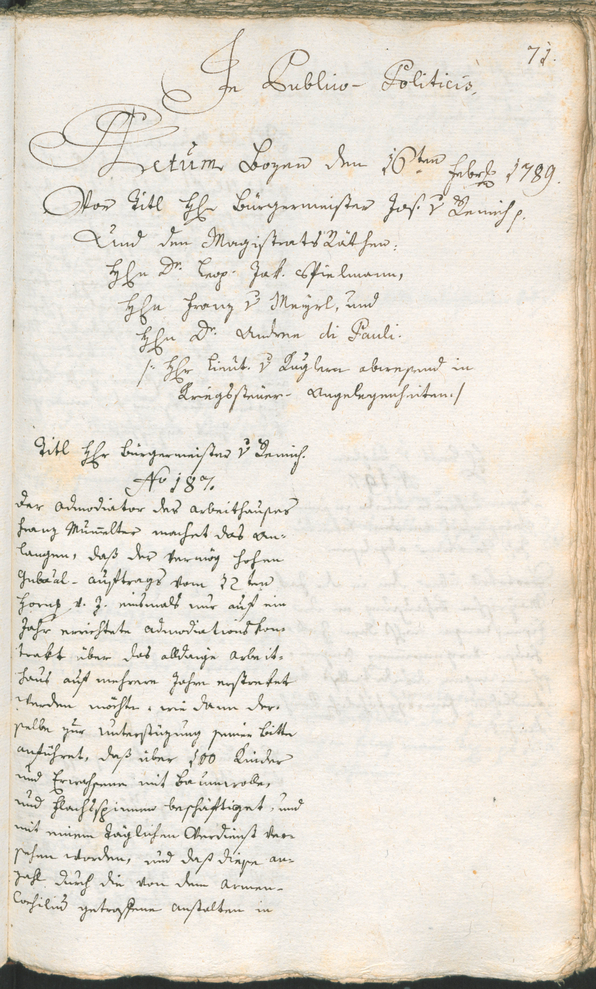 71.
In Publico-Politicis,
Actum Bozen den 16ten Febr. 1789.
Vor Titl Hhr Bürgermeister Jos. v Remich p.
Und den Magistrats Räthen:
Hhn Dr. Leop. Jak. Spielmann,
Hhn Franz v Meyrl, und
Hhn Dr. Andree di Pauli.
/: Hhr Lieut. v Kuglern abwesend in
Kriegssteuer- Angelegenheiten./
Titl Hhr Bürgermeister v Remich.
No 187.
Der Admodiator des Arbeithauses
Franz Mumelter machet das An-
langen, daß der vermög hohen
Gubäal- Auftrags vom 12ten
Horng v. J. einsmals nur auf ein
Jahr errichtete Admodiations Kon-
trakt über das alldaige Arbeit-
haus auf mehrere Jahre erstreket
werden möchte, wie dann der-
selbe zur Unterstüzung seiner Bitte
anführet, daß über 100 Kinder
und Erwachsene mit Baumwolle,
und Flachsspinnen beschäftiget, und
mit einem täglichen Verdienst ver-
sehen worden, und daß diese An-
zahl durch die von dem Armen-
Consilium getroffene Anstalten in